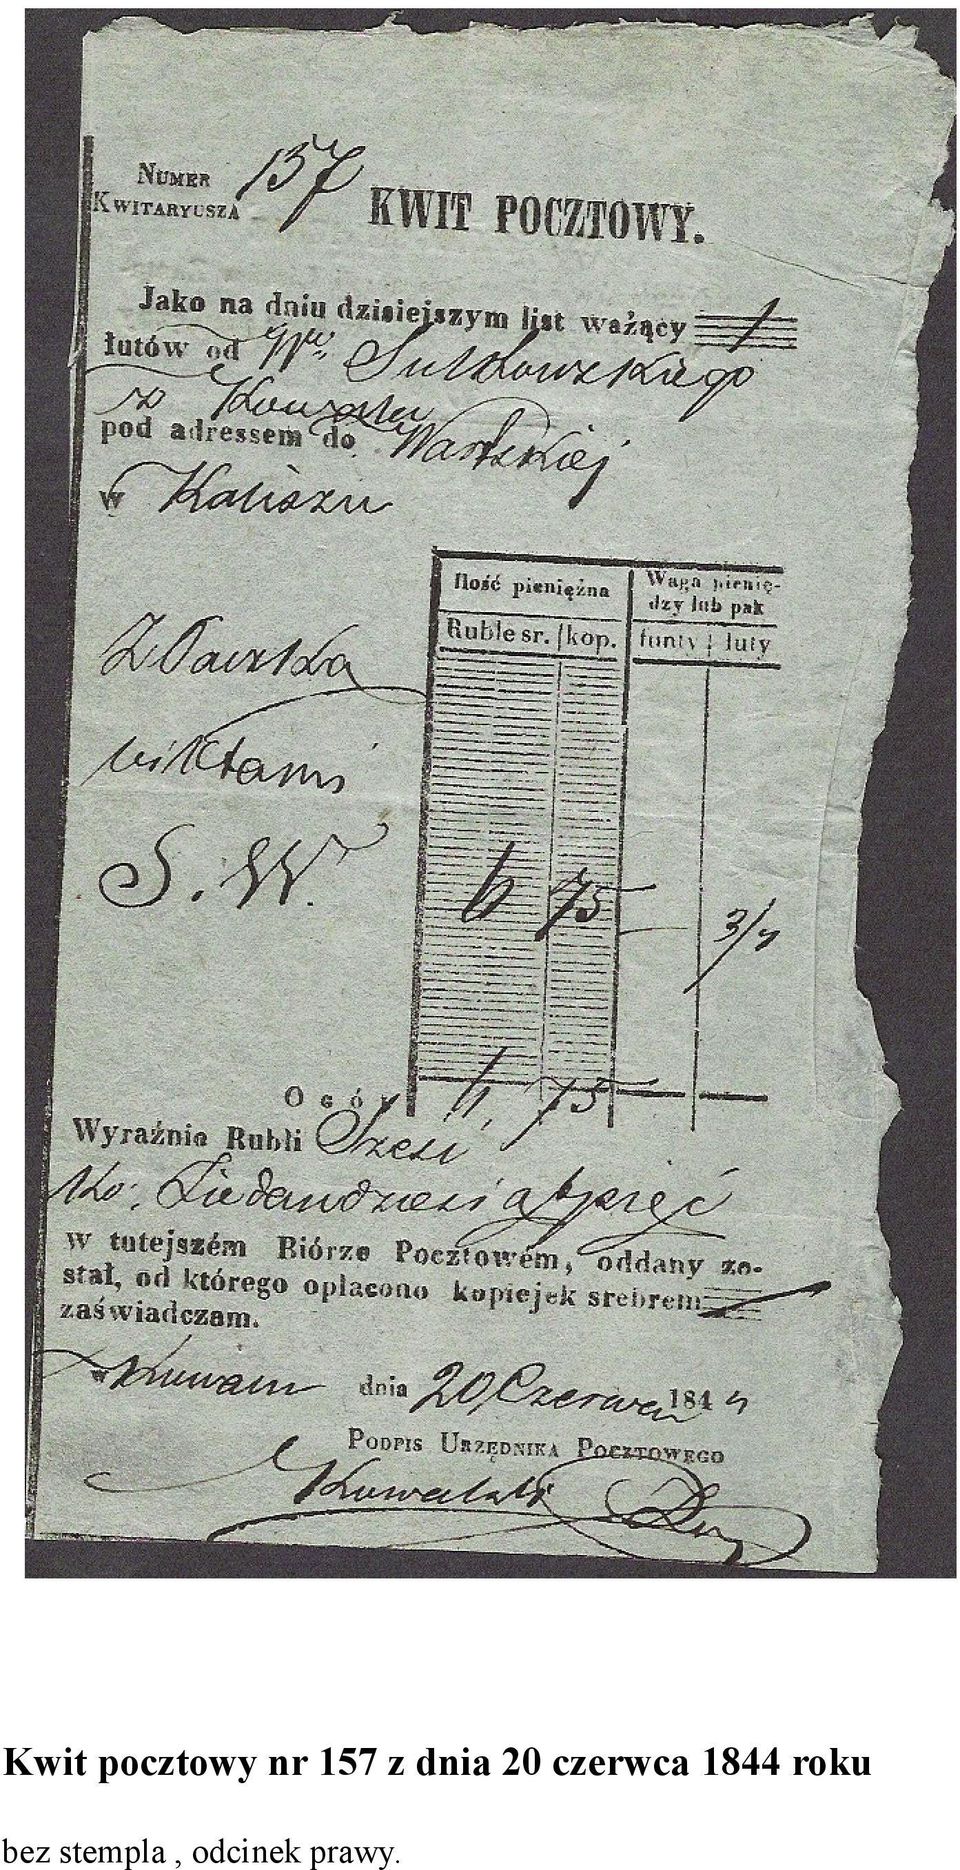 NUMER 157
KWITARYUSZA
KWIT POCZTOWY.
Jako na dniu dzisiejszym list ważący
łutów od JPu Sułkowskiego
z Kowala
pod adressem do Wartskiej
w Kaliszu
Ilość pieniężna
Waga pienię-
dzy lub pak
Ruble sr. kop. funty łuty
Paczka
wiktami
S. W.
6 75 3/4
Ogół 6 75
Wyraźnie Rubli Sześć
Ko: Siedmdziesiąt pięć
w tutejszém Biórze Pocztowém, oddany zo-
stał, od którego opłacono kopiejek srebrem
zaświadczam.
w dnia 20 Czerwca 1844
PODPIS URZĘDNIKA POCZTOWEGO
Kowalski
Kwit pocztowy nr 157 z dnia 20 czerwca 1844 roku
bez stempla , odcinek prawy.